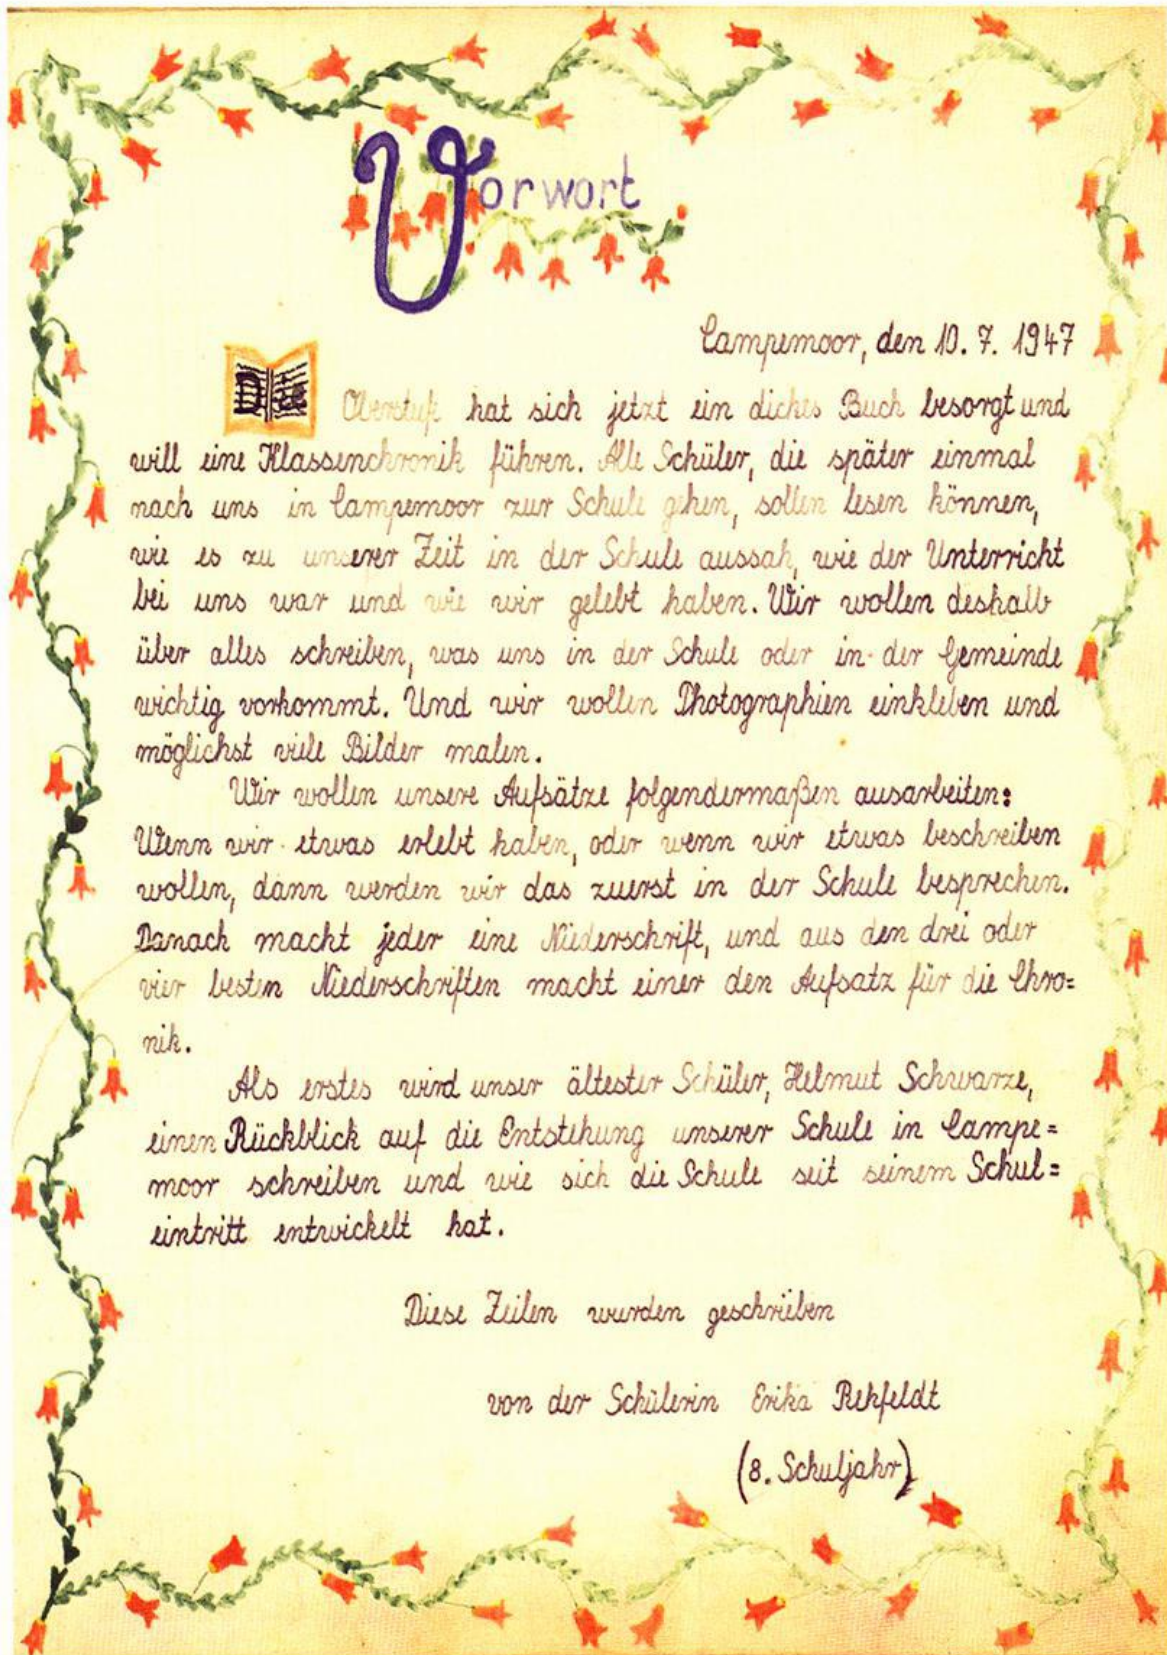 Vorwort
Campemoor, den 10. 7. 1947
Die Oberstufe hat sich jetzt ein dickes Buch besorgt und
will eine Klassenchronik führen. Alle Schüler, die später einmal
nach uns in Campemoor zur Schule gehen, sollen lesen können,
wie es zu unserer Zeit in der Schule aussah, wie der Unterricht
bei uns war und wie wir gelebt haben. Wir wollen deshalb
über alles schreiben, was uns in der Schule oder in der Gemeinde
wichtig vorkommt. Und wir wollen Photographien einkleben und
möglichst viele Bilder malen.
Wir wollen unsere Aufsätze folgendermaßen ausarbeiten:
Wenn wir etwas erlebt haben, oder wenn wir etwas beschreiben
wollen, dann werden wir das zuerst in der Schule besprechen.
Danach macht jeder eine Niederschrift, und aus den drei oder
vier besten Niederschriften macht einer den Aufsatz für die Chro=
nik.
Als erstes wird unser ältester Schüler, Helmut Schwarze,
einen Rückblick auf die Entstehung unserer Schule in Campe=
moor schreiben und wie sich die Schule seit seinem Schul=
eintritt entwickelt hat.
Diese Zeilen wurden geschrieben
von der Schülerin Erika Rehfeldt
(8. Schuljahr)